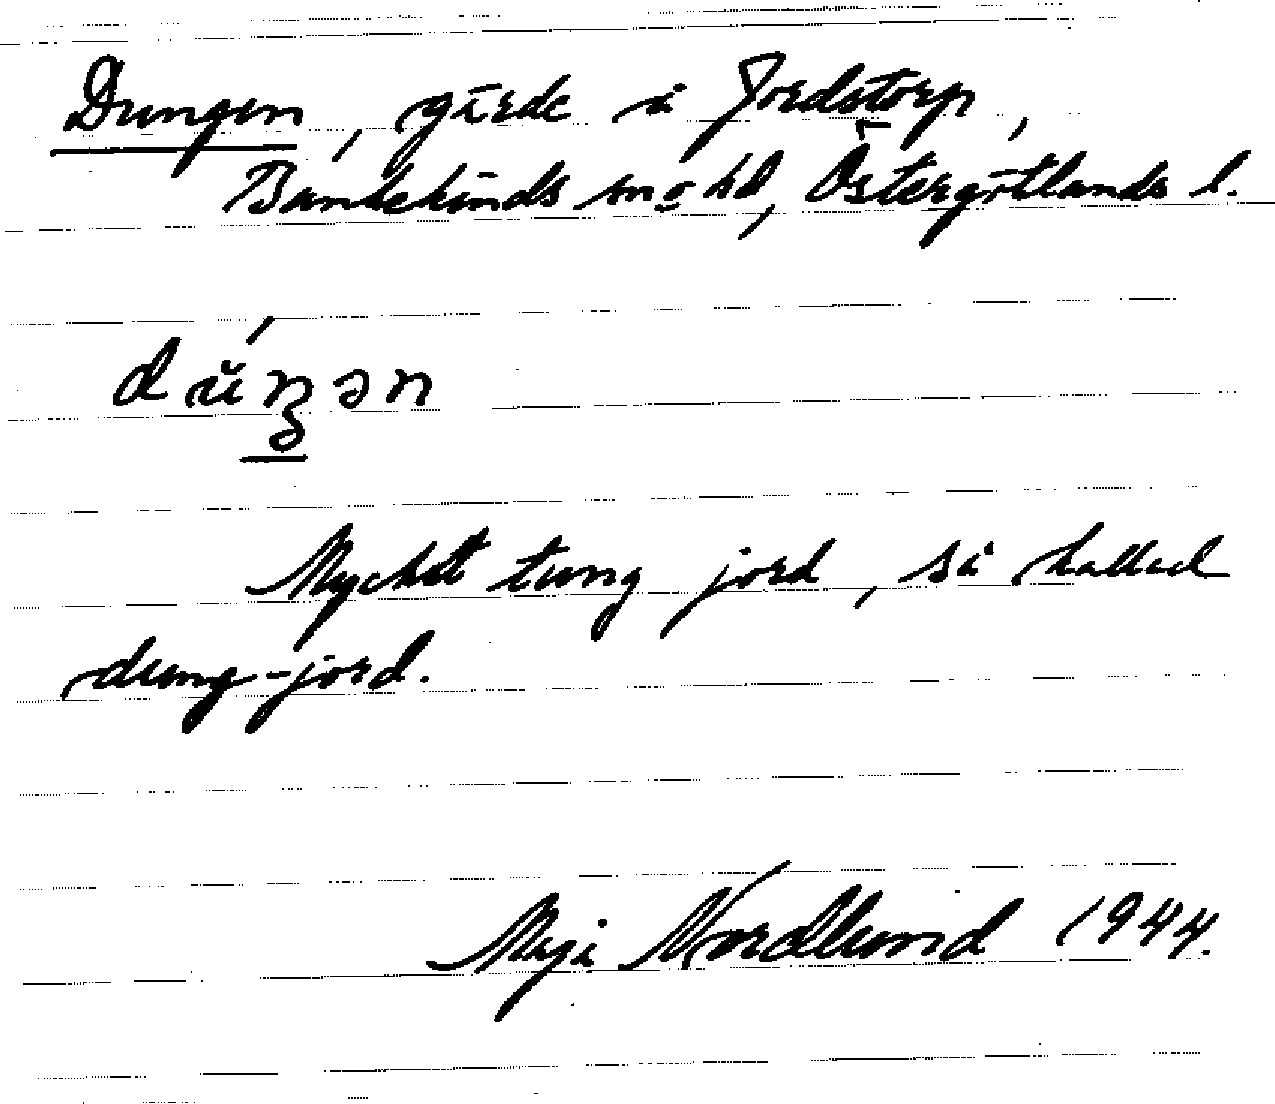 Dungen, gärde i Jordstorp,
Bankekinds sn o hd, Östergötlands l.
dúŋən
Mycket tung jord, så kallad
dung-jord.
Maja Nordlund 1944.